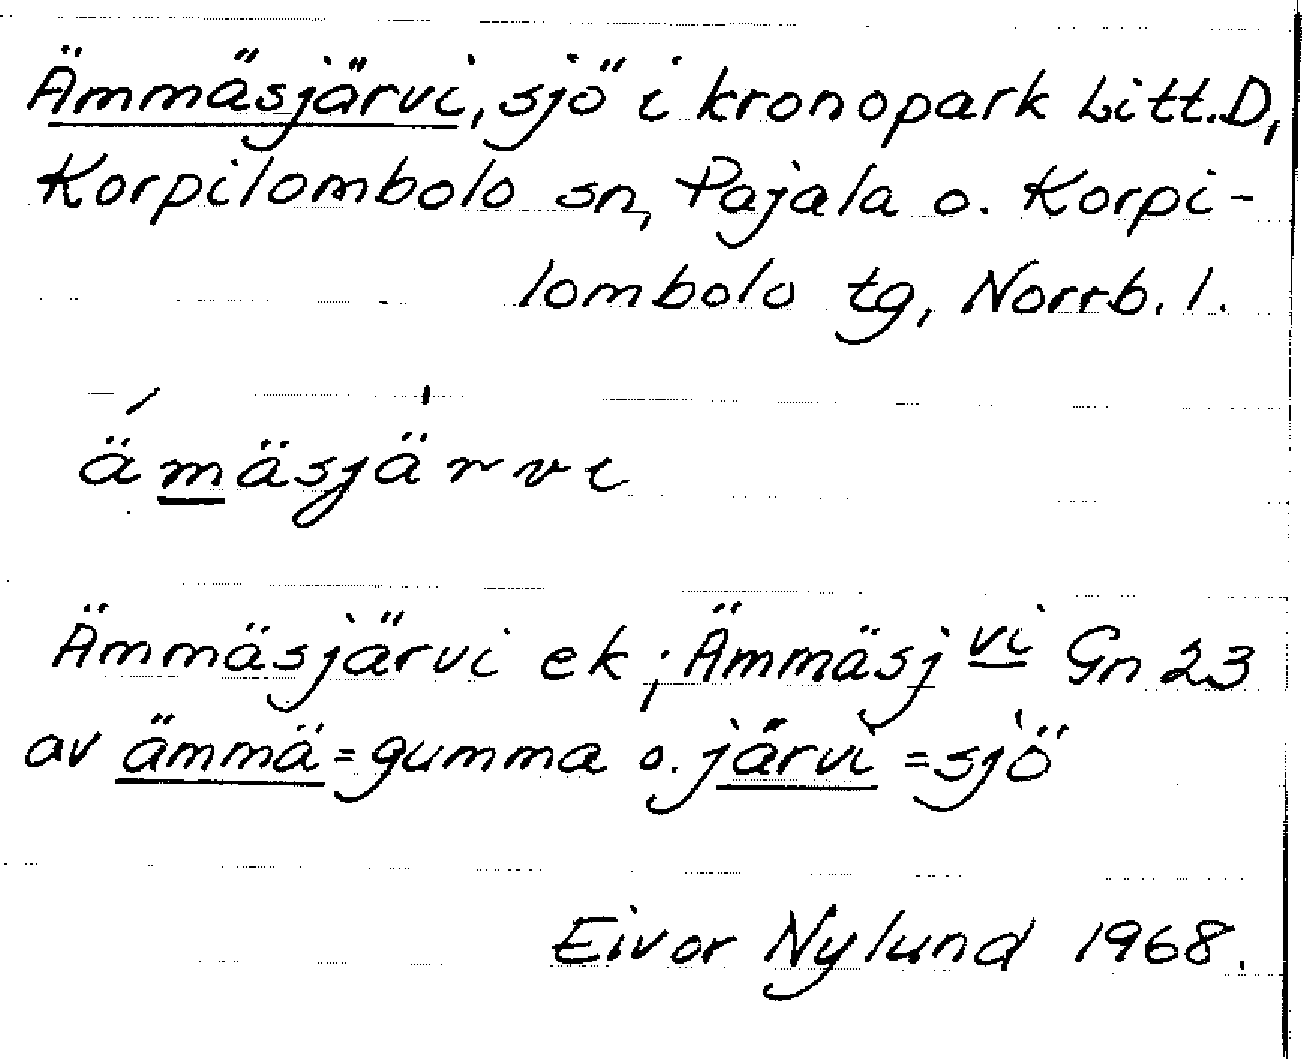 Ämmäsjärvi, sjö i kronopark Litt. D,
Korpilombolo sn, Pajala o. Korpi-
lombolo tg, Norrb. l.
ämäsjärvi
Ämmäsjärvi ek; Ämmäsj vi Gn 23
av ämmä = gumma o. järvi = sjö
Eivor Nylund 1968.